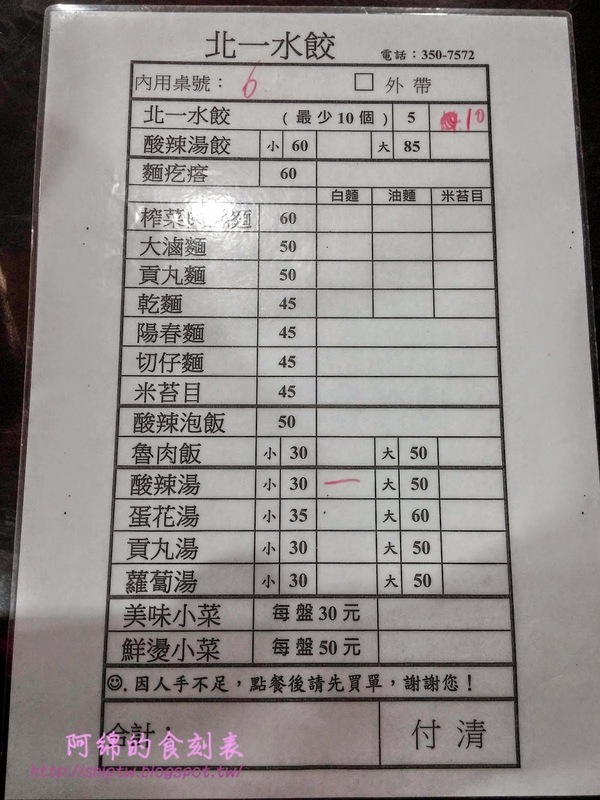 北一水餃 電話：350-7572
內用桌號： 6 □ 外帶
北一水餃 (最少10個) 5 10
酸辣湯餃 小 60 大 85
麵疙瘩 60
白麵 油麵 米苔目
榨菜 麵 60
大滷麵 50
貢丸麵 50
乾麵 45
陽春麵 45
切仔麵 45
米苔目 45
酸辣泡飯 50
魯肉飯 小 30 大 50
酸辣湯 小 30 一 大 50
蛋花湯 小 35 大 60
貢丸湯 小 30 大 50
蘿蔔湯 小 30 大 50
美味小菜 每盤30元
鮮燙小菜 每盤50元
☺.因人手不足，點餐後請先買單，謝謝您！
合計： 付清
阿綿的食刻表